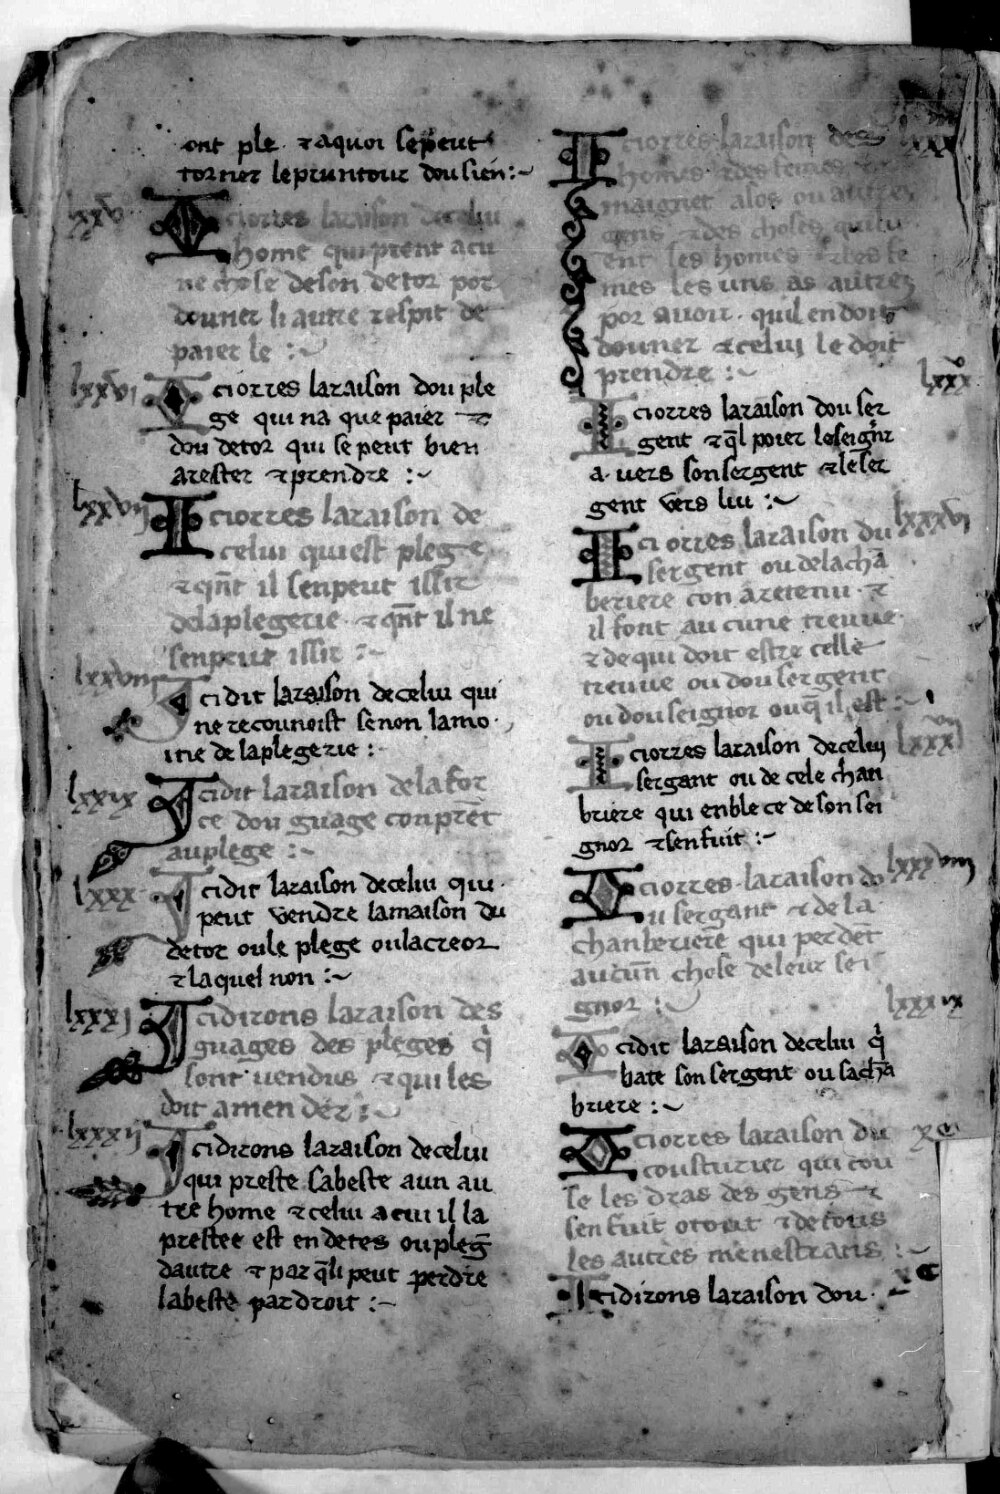 ont ple ⁊ aquoi se peut
torner le pruntour dou sien :~
lxxv
Iciorres laraison decelui
home qui prent acu
ne chose deson detor por
douner li autre respit de
paier le :~
lxxvi
Iciorres laraison dou ple
ge qui na que paier ⁊
dou detor qui se peut bien
arester ⁊ prendre :~
lxxvij
Iciorres laraison de
celui qui est plege
⁊ qñt il senpeut issir
delaplegerie ⁊ qñt il ne
senpeut issir :~
lxxviij
Icidit laraison decelui qui
ne recounoist se non lamo
itie de laplegerie :
lxxix
Icidit laraison delafor
ce dou guage con prēt
au plege :~
lxxx
Icidit laraison decelui qui
peut vendre lamaison du
detor oule plege oulacreor
⁊ laquel non :~
lxxxj
Icidirons laraison des
guages des pleges q̇
sont vendus ⁊ qui les
doit amender :~
lxxxij
Icidirons laraison decelui
qui preste sabeste aun au
tre home ⁊ celui acui il la
prestee est en detes ou pleḡ
dautre ⁊ par q̄li peut perdre
labeste par droit :~
lxxx
Iciorres laraison des
homes ⁊ des femes
maignet alos ou autres
gens ⁊ des choses quilu
ent les homes ⁊ les fe
mes les uns as autres
por avoir quil en doit
douner ⁊ celui le doit
prendre :~
lxxx
Iciorres laraison dou ser
gent ⁊ q̄l poier loseignr
a vers son sergent ⁊ le ser
gent vers lui :~
lxxxvi
Iciorres laraison du
sergent ou delachā
beriere con a retenu ⁊
il font aucune treuve
⁊ de qui doit estre celle
treuve ou dou sergent
ou dou seignor ou q̄ il est :~
lxxxvij
Iciorres laraison decelui
sergant ou de cele chan
briere qui enble ce de son sei
gnor ⁊ sen fuit :~
lxxxviij
Iciorres laraison do
u sergant ⁊ de la
chanberiere qui perdēt
aucun̄ chose de leur sei
gnor :~
lxxxix
Icidit laraison decelui q̇
bate son sergent ou sachā
briere :~
xc
Iciorres laraison du
cousturier qui cou
se les dras des gens ⁊
sen fuit o tout ⁊ de tous
les autres menestraus :~
Icidirons laraison dou